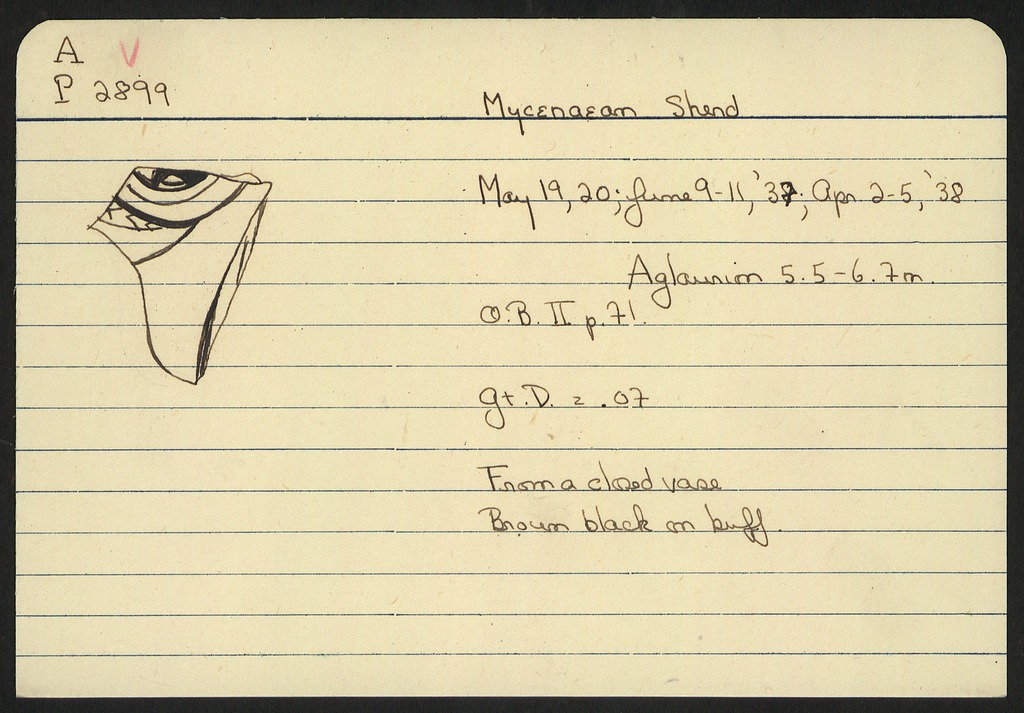 A V
P 2899
Mycenaean Sherd
May 19, 20; June 9-11, '37; Apr. 2-5, '38
Aglaurion 5.5-6.7m.
O.B. II p. 71.
Gt. D. = .07
From a closed vase
Brown black on buff.